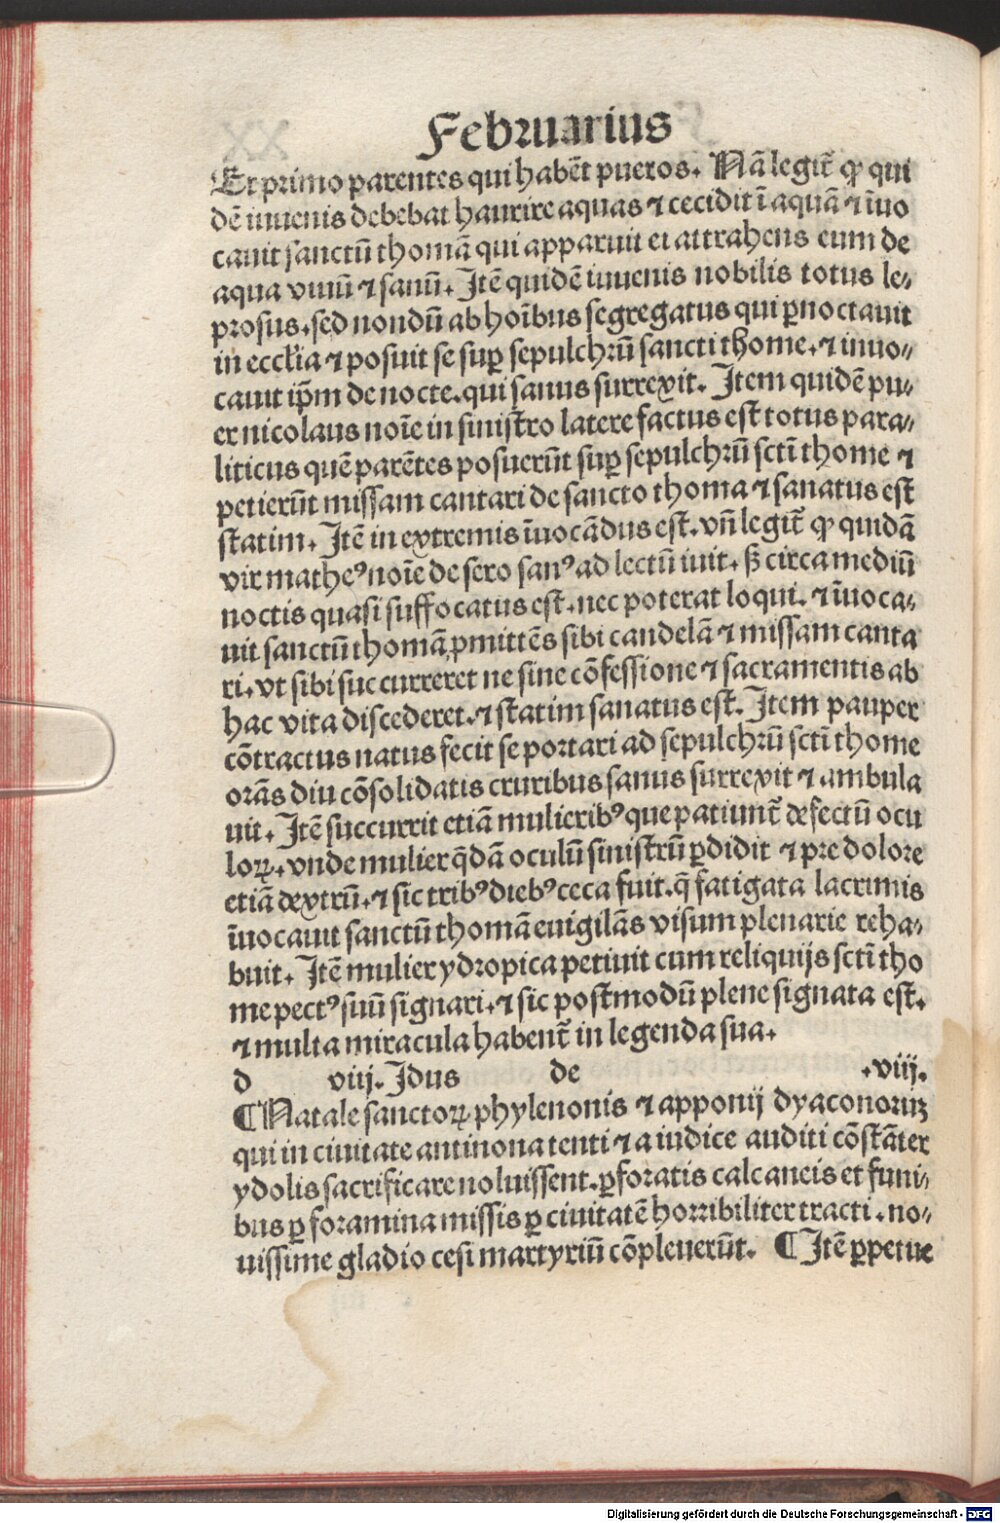 Februarius
Et primo parentes qui habēt pueros. Nā legit̄ ꝙ qui
dē iuuenis debebat haurire aquas ⁊ cecidit ī aquā ⁊ īuo
cauit sanctū thomā qui apparuit ei attrahens eum de
aqua viuū ⁊ sanū. Itē quidē iuuenis nobilis totus le⸗
prosus. sed nondū ab hoībus segregatus qui ꝑnoctauit
in eccl̄ia ⁊ posuit se suꝑ sepulchrū sancti thome. ⁊ inuo⸗
cauit ip̄m de nocte. qui sanus surrexit. Item quidē pu⸗
er nicolaus noīe in sinistro latere factus est totus para⸗
liticus quē parētes posuerūt suꝑ sepulchrū sctī thome ⁊
petierūt missam cantari de sancto thoma ⁊ sanatus est
statim. Itē in extremis īuocādus est. vn̄ legit̄ ꝙ quidā
vir matheꝰ noīe de sero sanꝰ ad lectū iuit. ß circa mediū
noctis quasi suffocatus est. nec poterat loqui. ⁊ īuoca⸗
uit sanctū thomā ꝓmittēs sibi candelā ⁊ missam canta
ri. vt sibi succurreret ne sine cōfessione ⁊ sacramentis ab
hac vita discederet. ⁊ statim sanatus est. Item pauper
cōtractus natus fecit se portari ad sepulchrū sctī thome
orās diu cōsolidatis cruribus sanus surrexit ⁊ ambula
uit. Itē succurrit etiā mulieribꝰ que patiunt̄ defectū ocu
loꝝ. vnde mulier q̄dā oculū sinistrū ꝑdidit ⁊ pre dolore
etiā dextrū. ⁊ sic tribꝰ diebꝰ ceca fuit. q̄ fatigata lacrimis
īuocauit sanctū thomā euigilās visum plenarie reha⸗
buit. Itē mulier ydropica petiuit cum reliquijs sctī tho
me pectꝰ suū signari. ⁊ sic postmodū plene signata est.
⁊ multa miracula habent̄ in legenda sua.
d viij. Idus de .viij.
¶ Natale sanctoꝝ phylenonis ⁊ apponij dyaconoruꝫ
qui in ciuitate antinona tenti ⁊ a iudice auditi cōstāter
ydolis sacrificare noluissent. ꝑforatis calcaneis et funi⸗
bus ꝑ foramina missis ꝑ ciuitatē horribiliter tracti. no⸗
uissime gladio cesi martyriū cōpleuerūt. ¶ Itē ꝑpetue
Digitalisierung gefördert durch die Deutsche Forschungsgemeinschaft - DFG